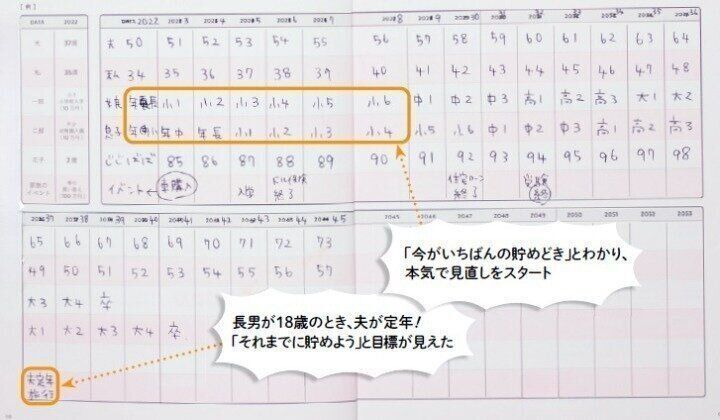 [例]
DATA 2022 DATA 2022 2023 2024 2025 2026 2027 2028 2029 2030 2031 2032 2033 2034 2035 2036
夫 37歳 夫 50 51 52 53 54 55 56 57 58 59 60 61 62 63 64
私 35歳 私 34 35 36 37 38 39 40 41 42 43 44 45 46 47 48
娘 年長 小1 小2 小3 小4 小5 小6 中1 中2 中3 高1 高2 高3 大1 大2
息子 年少 年中 年長 小1 小2 小3 小4 小5 小6 中1 中2 中3 高1 高2 高3
2歳 じじばば 85 86 87 88 89 90 91 92 93 94 95 96 97 98
家族のイベント イベント← 車購入 入学 ドル保険終了 住宅ローン終了 受験 終
2037 38 39 40 41 42 43 44 45 2045 2046 2047 2048 2049 2050 2051 2052 2053
65 66 67 68 69 70 71 72 73
49 50 51 52 53 54 55 56 57
大3 大4 卒
大1 大2 大3 大4 卒
夫定年
旅行
「今がいちばんの貯めどき」とわかり、
本気で見直しをスタート
長男が18歳のとき、夫が定年!
「それまでに貯めよう」と目標が見えた